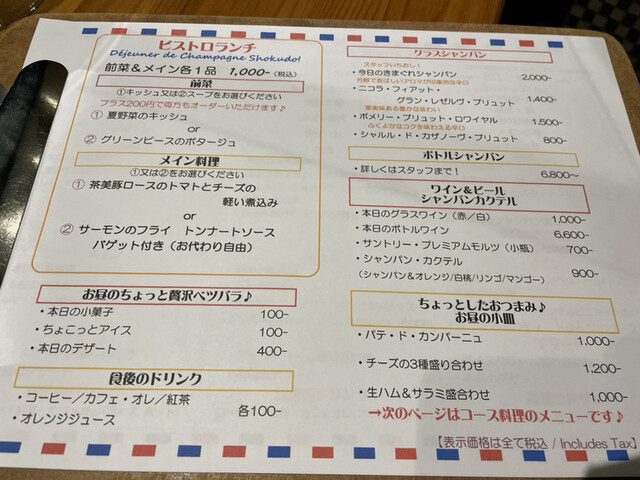 ビストロランチ
Déjeuner de Champagne Shokudo!
前菜&メイン各1品 1,000-(税込)
前菜
①キッシュ又は②スープをお選びください
プラス200円で両方もオーダーいただけます♪
① 夏野菜のキッシュ
or
② グリーンピースのポタージュ
メイン料理
①又は②をお選びください
① 茶美豚ロースのトマトとチーズの
軽い煮込み
or
② サーモンのフライ トンナートソース
バゲット付き(お代わり自由)
お昼のちょっと贅沢ベツバラ♪
・本日の小菓子 100-
・ちょこっとアイス 100-
・本日のデザート 400-
食後のドリンク
・コーヒー/カフェ・オレ/紅茶
・オレンジジュース 各100-
グラスシャンパン
スタッフいちおし!
・今日のきまぐれシャンパン 2,000-
芳醇で香ばしいアロマが印象的な辛口
・ニコラ・フィアット・
グラン・レゼルヴ・ブリュット 1,400-
果実味ある豊かな味わい
・ポメリー・ブリュット・ロワイヤル 1,500-
ふくよかなコクを味わえる辛口
・シャルル・ド・カザノーヴ・ブリュット 800-
ボトルシャンパン
・詳しくはスタッフまで! 6,800〜
ワイン&ビール
シャンパンカクテル
・本日のグラスワイン(赤/白) 1,000-
・本日のボトルワイン 6,600-
・サントリー・プレミアムモルツ(小瓶) 700-
・シャンパン・カクテル 900-
(シャンパン&オレンジ/白桃/リンゴ/マンゴー)
ちょっとしたおつまみ♪
お昼の小皿
・パテ・ド・カンパーニュ 1,000-
・チーズの3種盛り合わせ 1,200-
・生ハム&サラミ盛合わせ 1,000-
→次のページはコース料理のメニューです♪
【表示価格は全て税込 / Includes Tax】